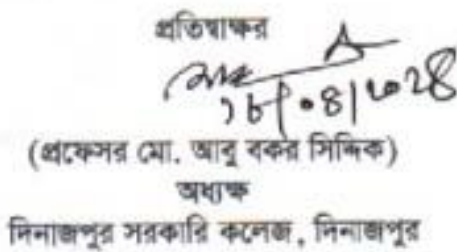 প্রতিস্বাক্ষর
১৮|০৪|২০২৪
(প্রফেসর মো. আবু বকর সিদ্দিক)
অধ্যক্ষ
দিনাজপুর সরকারি কলেজ, দিনাজপুর